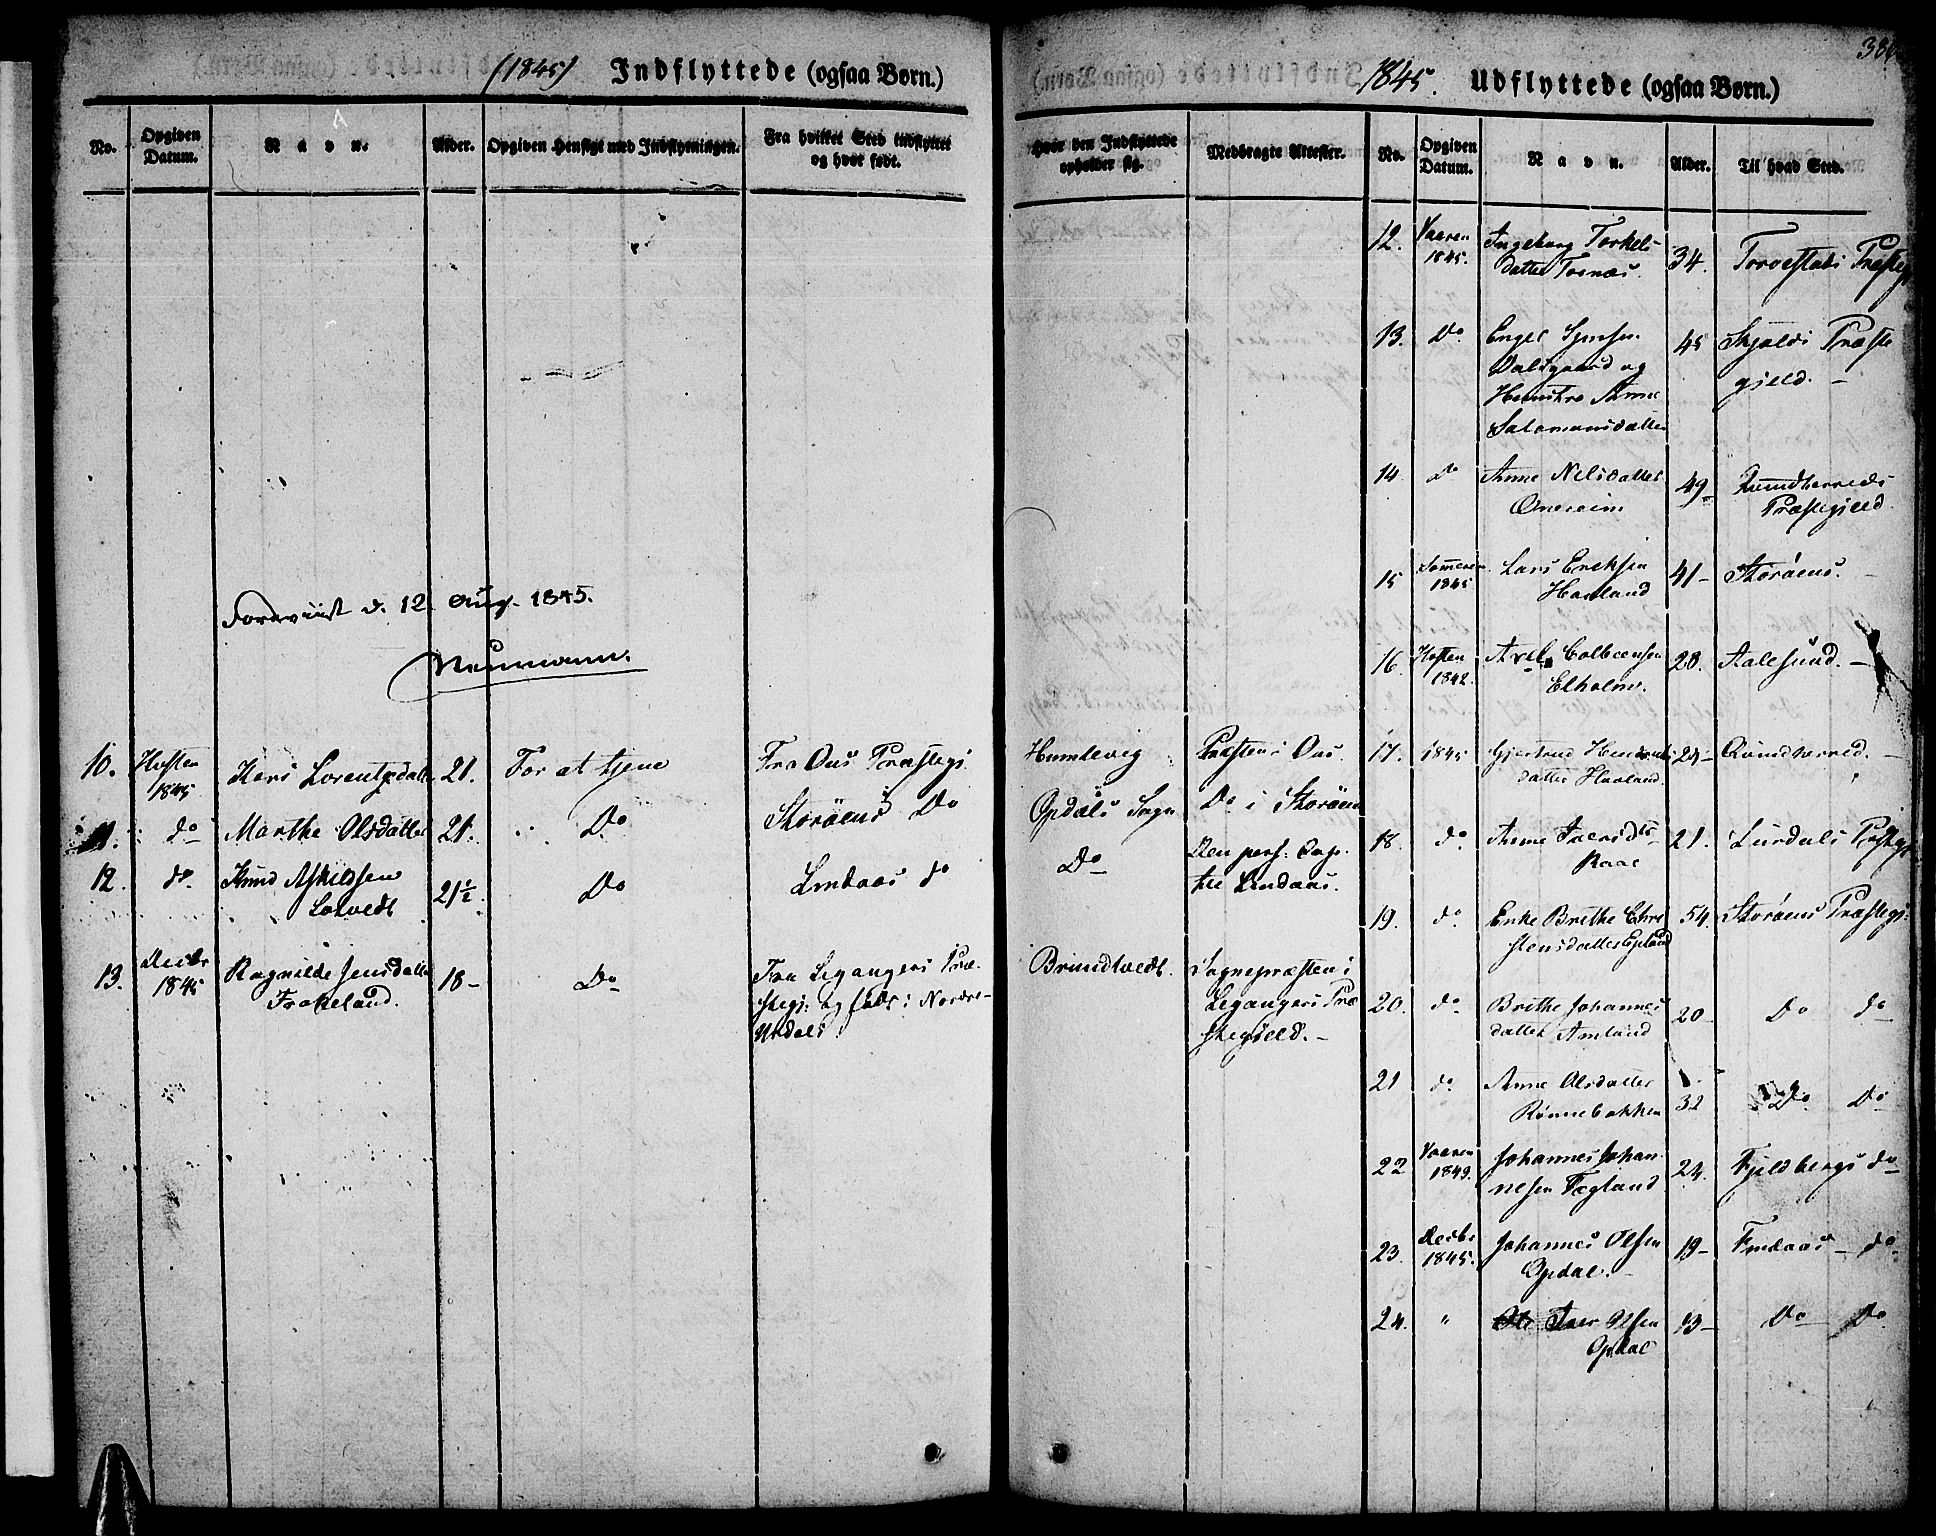 (1845) Indflyttede (ogsaa Børn.)
No.
Opgiven Datum.
Navn.
Alder.
Opgiven Hensigt med Indflytningen.
Fra hvilket Sted indflyttet og hvor født.
Foreviist d. 12 Aug. 1845.
Neumann.
10. Høsten 1845 Kari Lorentzdatter 21. For at tjene Fra Ous Præstegj.
11. do Marthe Olsdatter 21. Do Storøens Do
12. do. Knud Askildsen 21½ Do Lindaas do
13. Decbr 1845 Ragnilde Jensdatter 18- Do Fra Legangers Præ-
Frakeland. stegj: og født i Nordre-
386
1845. Udflyttede (ogsaa Børn.)
Hvor den Indflyttede opholder sig.
Medbragte Attester.
No.
Opgiven Datum.
Navn.
Alder.
Til hvad Sted.
Humlevig Præsten i Ous.
Opdals Sogn Do i Storøen
Do Den pers: Cap.
Lindaas.
Brundtvedt. Sognepræsten i
Legangers Præ
stegield. -
12. Vaaren 1845. Ingeborg Torkels- 34. Torvestads Præstegj
datter Tornæs.
13. Do Engel 45 Skjolds Præste
Dalsgaard og gjeld. -
Hustro Anne
Salamonsdatter
14. do Anne Nelsdatter 49- Qvindherreds
Præstegjeld
15 Sommeren 1845 Lars Eriksen 41- Storøens. -
Haaland
16 Høsten 1842. Axel Colbeensen 28. Aalesund. -
Elholm.
17. 1845 Gjertrud 24- Qvindherred. -
datter Haaland.
18. do Anne Iversdtr 21. Præstegj
19. do Enke Brithe Chri 54. Storøens Præstegj:
stensdatter
20. do Brithe Johannes 20- Do do
datter Amland
21 do Anne Olsdatter 32 Do Do
Rønnebakken
22 Vaaren 1849. Johannes Johan 24. Fjeldbergs do
nesen Fagland
23. Decbr 1845. Johannes Olsen 19- do.
Opdal.
24. " Iver Olsen 13- Do Do
Opdal